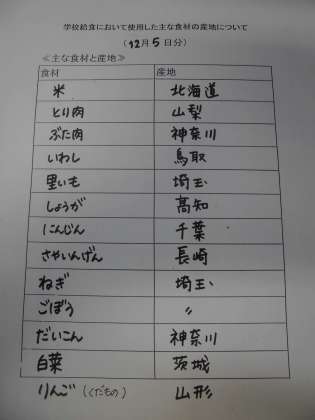 学校給食において使用した主な食材の産地について
(12月5日分)
≪主な食材と産地≫
食材 産地
米 北海道
とり肉 山梨
ぶた肉 神奈川
いわし 鳥取
里いも 埼玉
しょうが 高知
にんじん 千葉
さやいんげん 長崎
ねぎ 埼玉
ごぼう 〃
だいこん 神奈川
白菜 茨城
りんご(くだもの) 山形